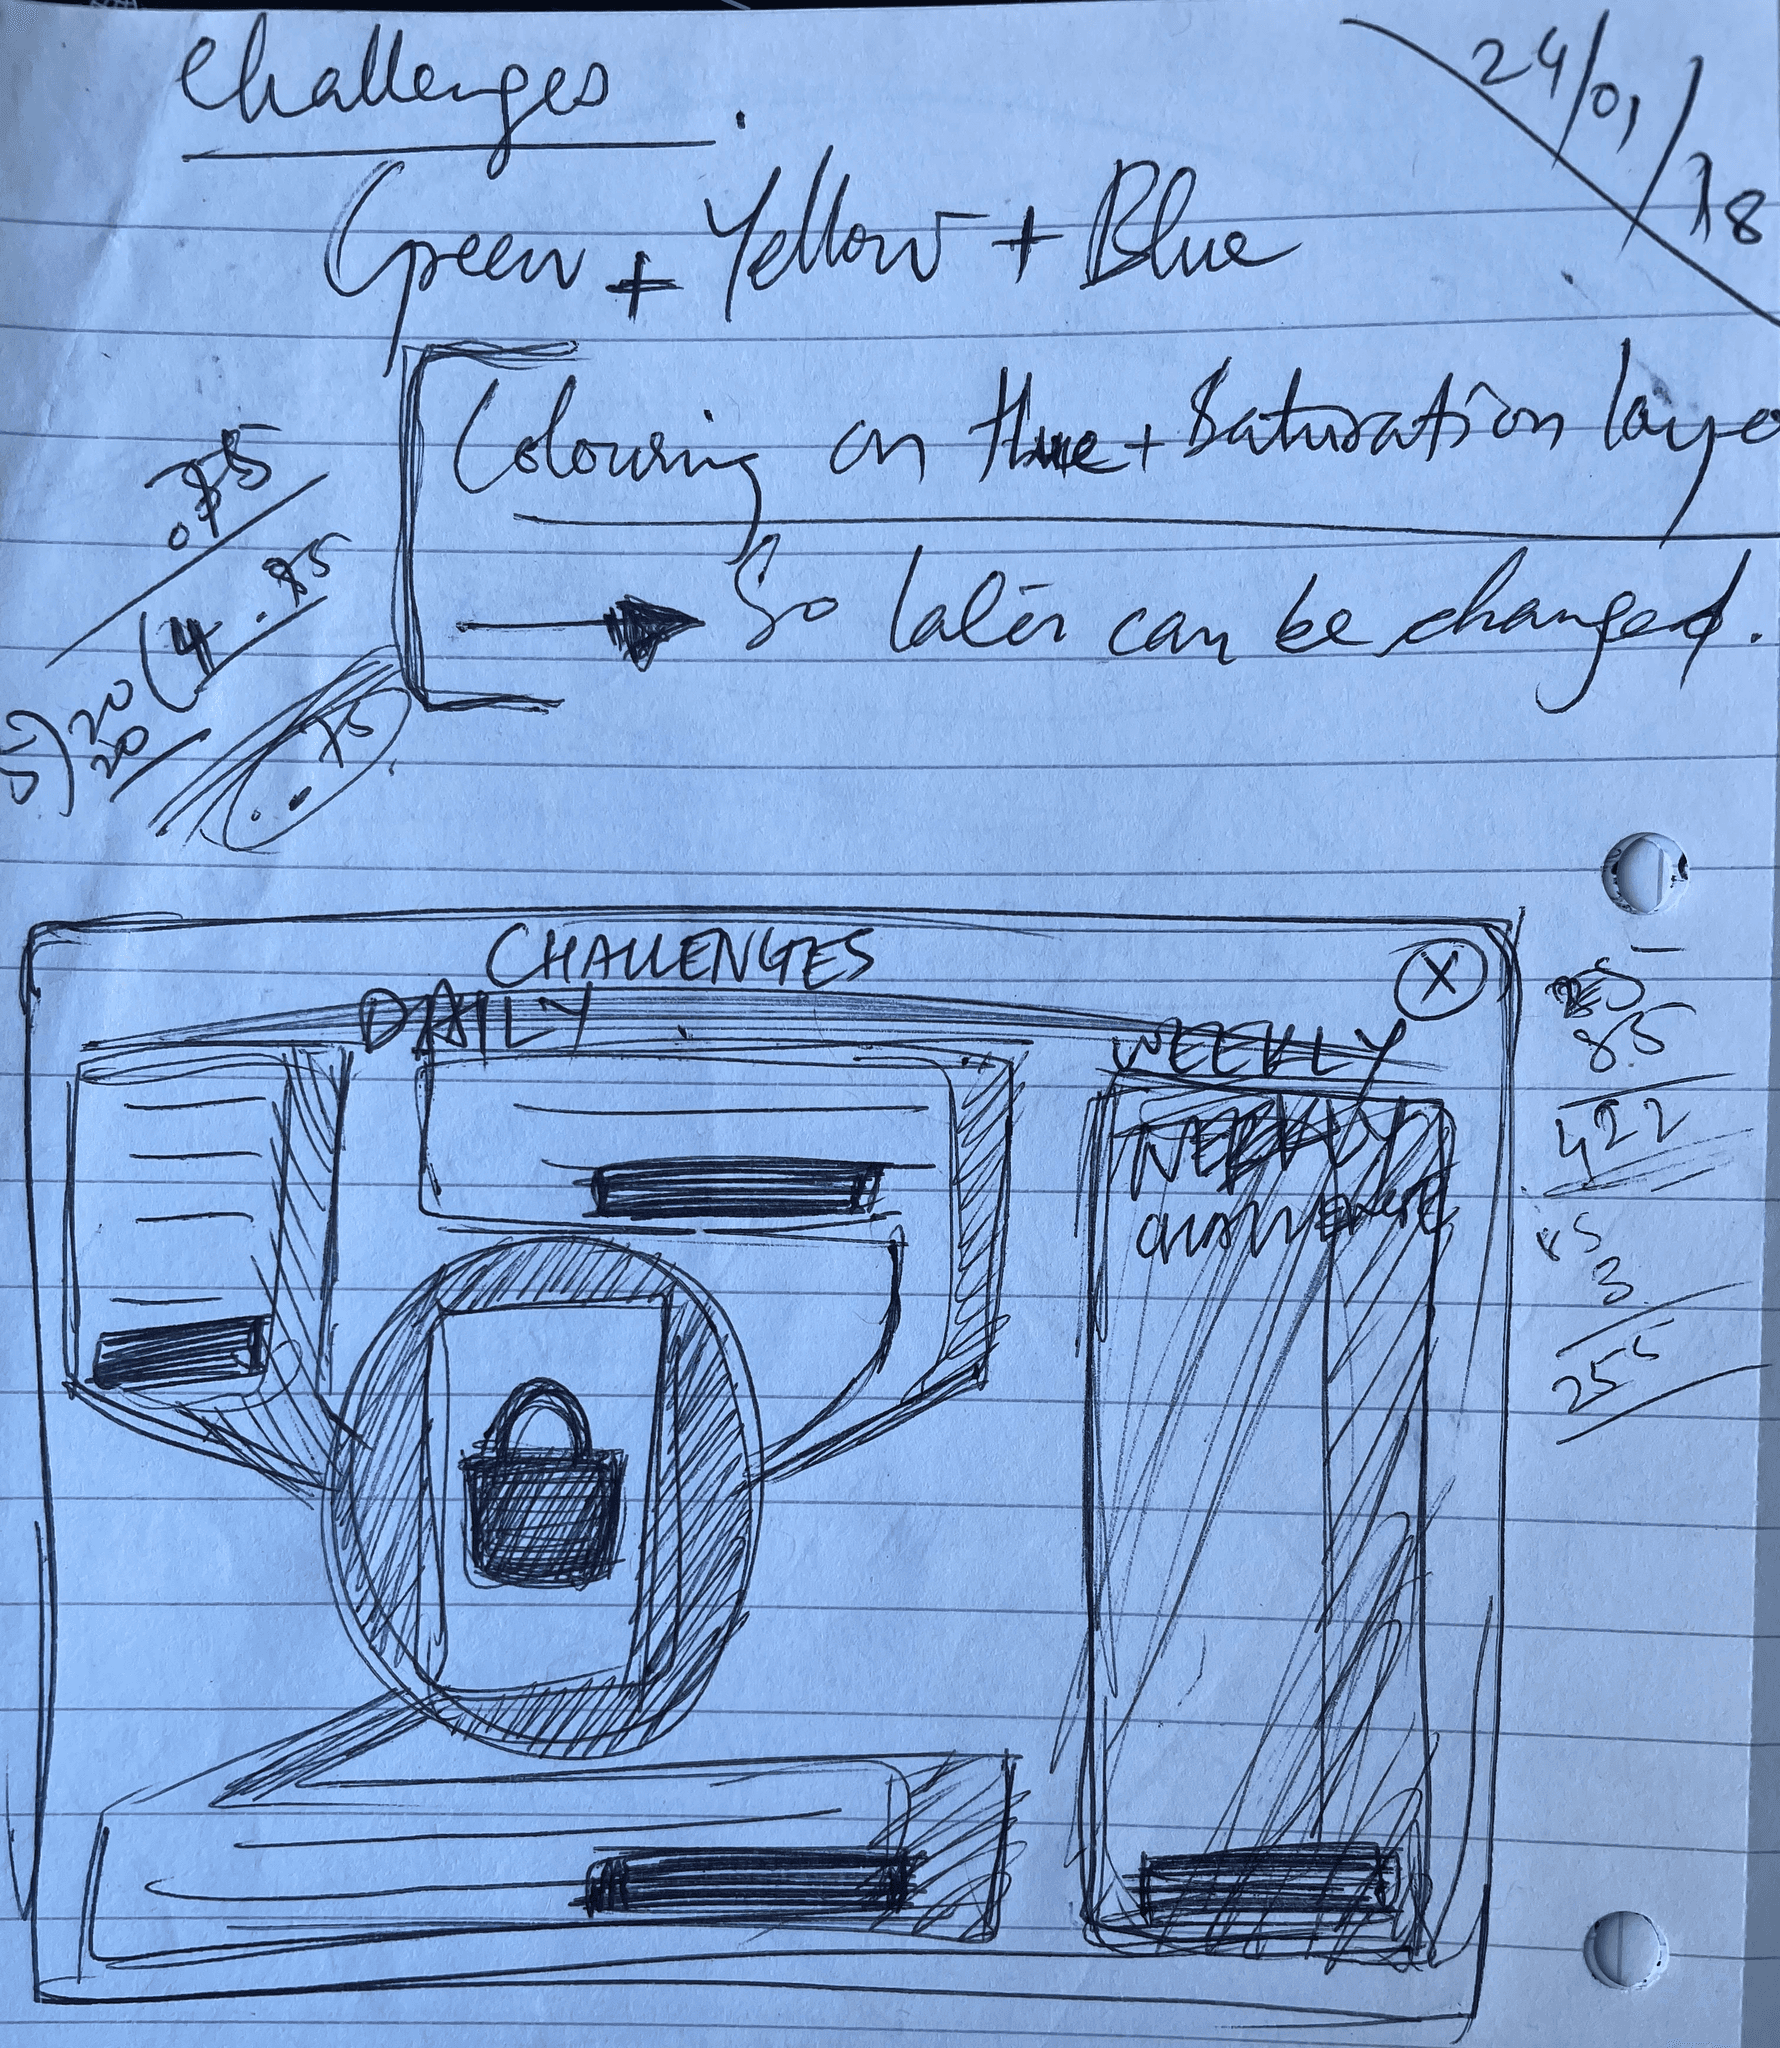 Challenges
24/01/18
Green + Yellow + Blue
Colouring on Hue + Saturation laye
So later can be changed.
4.85
5) 20
20
.75
CHALLENGES
X
DAILY
WEEKLY
WEEKLY
85
422
85
3
255